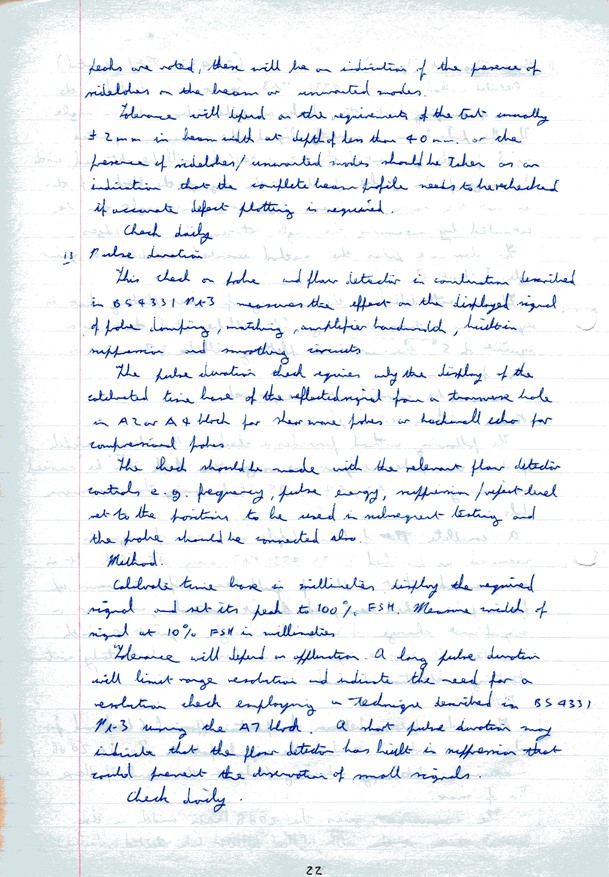 peaks are noted, these will be an indication of the presence of
sidelobes on the beam or unwanted modes.
Tolerance will depend on the requirements of the test usually
± 2mm in beam width at depth of less than 40mm. or the
presence of sidelobes/unwanted modes should be taken as an
indication that the complete beam profile needs to be rechecked
if accurate defect plotting is required.
Check daily
13 Pulse duration
This check on probe and flaw detector in combination described
in BS4331 Pt.3 measures the effect on the displayed signal
of probe damping, matching, amplifier bandwidth, built-in
suppression and smoothing circuits
The pulse duration check requires only the display of the
calibrated time base of the reflected signal from a transverse hole
in A2 or A4 block for shear wave probes or backwall echo for
compressional probes
The check should be made with the relevant flaw detector
controls e.g. frequency, pulse energy, suppression/reject level
set to the positions to be used in subsequent testing and
the probe should be connected also.
Method.
Calibrate time base in millimetres display the required
signal and set its peak to 100% FSH. Measure width of
signal at 10% FSH in millimetres
Tolerance will depend on application. A long pulse duration
will limit range resolution and indicate the need for a
resolution check employing a technique described in BS4331
Pt.3 using the A7 block. A short pulse duration may
indicate that the flaw detector has built in suppression that
could prevent the observation of small signals.
Check daily.
22